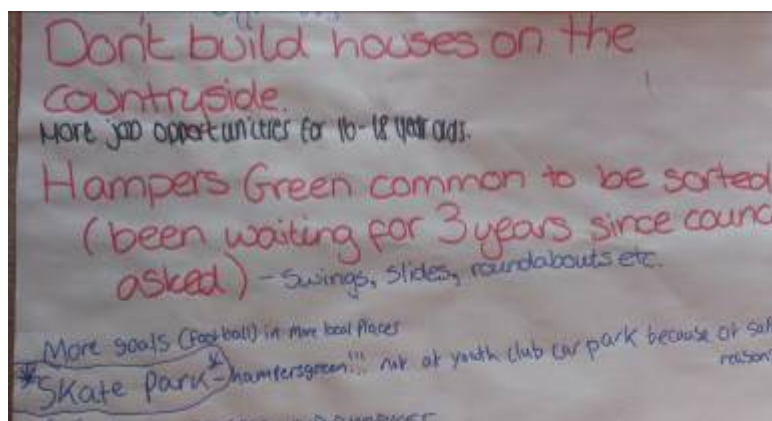 Don't build houses on the
countryside.
More job opportunities for 16-18 year olds.
Hampers Green common to be sorted
(been waiting for 3 years since counc
asked) - Swings, slides, roundabouts etc.
More goals (football) in more local places
*Skate Park* - hampersgreen!!! not at youth club car park because of saf
reason